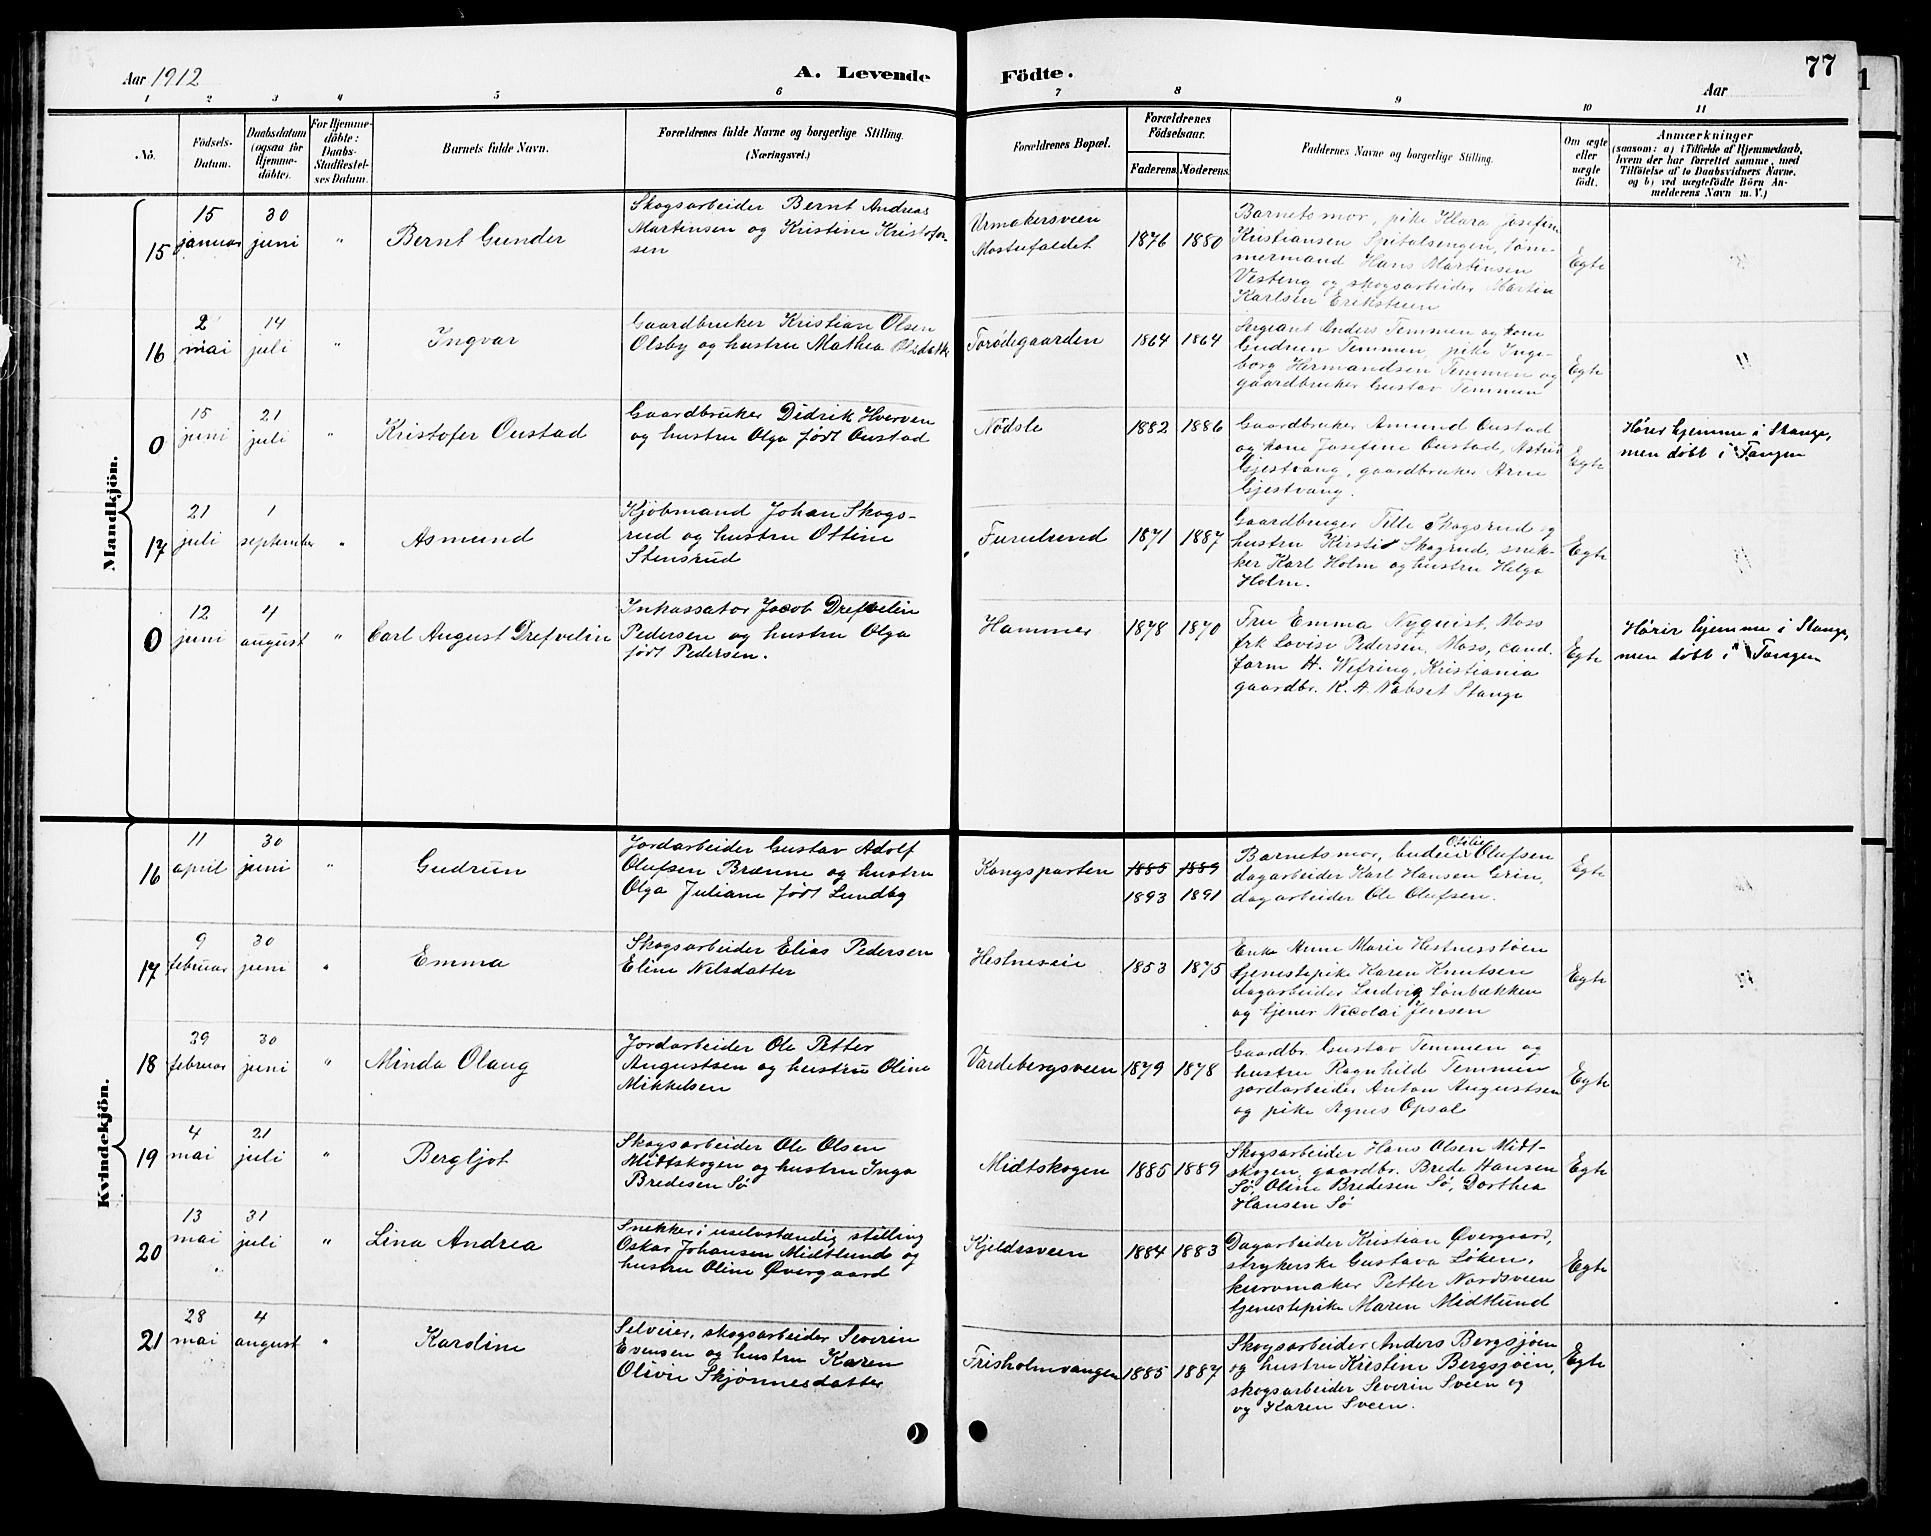 Aar 1912
A. Levende Födte.
77
Aar
1 2 3 4 5 6 7 8 9 10 11
No.
Födsels-
Datum.
Daabsdatum
(ogsaa for
Hjemme-
döbte).
For Hjemme-
döbte:
Daabs-
Stadfestel-
ses Datum.
Barnets fulde Navn.
Forældrenes fulde Navne og borgerlige Stilling.
(Næringsvei.)
Forældrenes Bopæl.
Forældrenes
Födselsaar.
Faderens.
Moderens.
Faddernes Navne og borgerlige Stilling.
Om ægte
eller
uægte
født.
Anmærkninger
(saasom: a) i Tilfælde af Hjemmedaab,
hvem der har forrettet samme, med
Tilföielse af to Daabsvidners Navne.
og b) ved uægtefödte Börn An-
melderens Navn m. V.)
Mandkjön.
15
15
januar
30
juni
"
Bernt Gunder
Skogsarbeider Bernt Andreas
Martinsen og Kristine Kristofer-
sen
Urmakersveen
Mostuefaldet
1876
1880
Barnets mor, pike Klara Josefine
Kristiansen Spitalsengen, töm-
mermand Hans Martinsen
Vesteng og skogsarbeider Martin
Karlsen Eriksteen
Egte
16
2
mai
14
juli
"
Ingvar
Gaardbruker Kristian Olsen
Olsby og hustru Mathea
Torödegaarden
1864
1864
Sergeant Anders Temmen og kone
Gudrun Temmen, pike Inge-
borg Hermandsen Temmen og
gaardbruker Gustav Temmen
Egte
0
15
juni
21
juli
"
Kristofer Oustad
Gaardbruker Didrik Hverven
og hustru Olga født Oustad
Nödsle
1882
1886
Gaardbruker Amund Oustad
og kone Josefine Oustad, Astrid
Gjestvang, gaardbruker Arne
Gjestvang.
Egte
Hører hjemme i Stange,
men døbt i Tangen
17
21
juli
1
september
"
Asmund
Kjöbmand Johan Skogs-
rud og hustru Ottine
Stensrud
Furulund
1871
1887
Gaardbruger Tille Skogsrud og
hustru Kirsti Skogrud, snek-
ker Karl Holm og hustru Helga
Holm.
Egte
0
12
juni
4
august
"
Carl August Drefvelin
Inkassator Jacob Drefvelin
Pedersen og hustru Olga
født Pedersen.
Hammer
1878
1870
Fru Emma Nyquist, Moss
frk Lovise Pedersen, Moss, cand.
farm H. Wefring, Kristiania
gaardbr. K. A. Nabset Stange
Egte
Hörer hjemme i Stange,
men döbt i Tangen
Kvindekjön.
16
11
april
30
juni
"
Gudrun
Jordarbeider Gustav Adolf
Olufsen Brænne og hustru
Olga Juliane født Lundby
Kongsparten
1885
1889
1893
1891
Barnets mor, budeie Otilie Olufsen
dagarbeider Karl Hansen Grin,
dagarbeider Ole Olufsen.
Egte
17
9
februar
30
juni
"
Emma
Skogsarbeider Elias Pedersen
Eline Nilsdatter
Hestneseie
1853
1875
Enke Anne Marie Hestnesstöen
tjenestepike Karen Knutsen
dagarbeider Ludvig Lönbækken
og tjener Nicolai Jensen
Egte
18
29
februar
30
juni
"
Minda Olaug
Jordarbeider Ole Petter
Augustsen og hustru Oline
Mikkelsen
Vardebergsveen
1879
1878
Gaardbr. Gustav Temmen og
hustru Ragnhild Temmen
jordarbeider Anton Augustsen
og pike Agnes Opsal
Egte
19
4
mai
21
juli
"
Bergljot
Skogsarbeider Ole Olsen
Midtskogen og hustru Inga
Bredesen Sö
Midtskogen
1885
1889
Skogsarbeider Hans Olsen Midt-
skogen, gaardbr. Brede Hansen
Sö, Oline Bredesen Sö, Dorthea
Hansen Sö
Egte
20
13
mai
31
juli
"
Lina Andrea
Snekker i uselvstændig stilling
Oskar Johansen Midtlund og
hustru Oline Øvergaard
Kjeldsveen
1884
1883
Dagarbeider Kristian Øvergaard,
strykerske Gustava Löken,
kurvmaker Petter Nordsveen
tjenestepike Maren Midtlund
Egte
21
28
mai
4
august
"
Karoline
Selveier, skogsarbeider Severin
Evensen og hustru Karen
Olivie Skjönnesdatter
Frisholmvangen
1885
1887
Skogsarbeider Anders Bergsjöen
og hustru Kristine Bergsjöen,
skogsarbeider Severin Sveen og
og Karen Sveen.
Egte